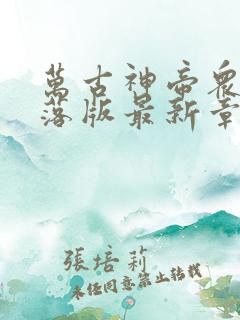 萬古神帝眾
落版最新章
張培莉
未经同意禁止转载